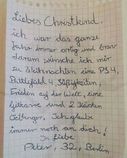 Liebes Christkind.
ich war das ganze
Jahr immer artig und brav
darum wünsche ich mir
zu Weihnachten eine PS4,
Battlefield 4, Süßigkeiten,
Frieden auf der Welt, eine
Gitarre und 2 Kästen
Oettinger. Ich glaube
immer noch an dich!
Liebe
Peter, 32, Berlin